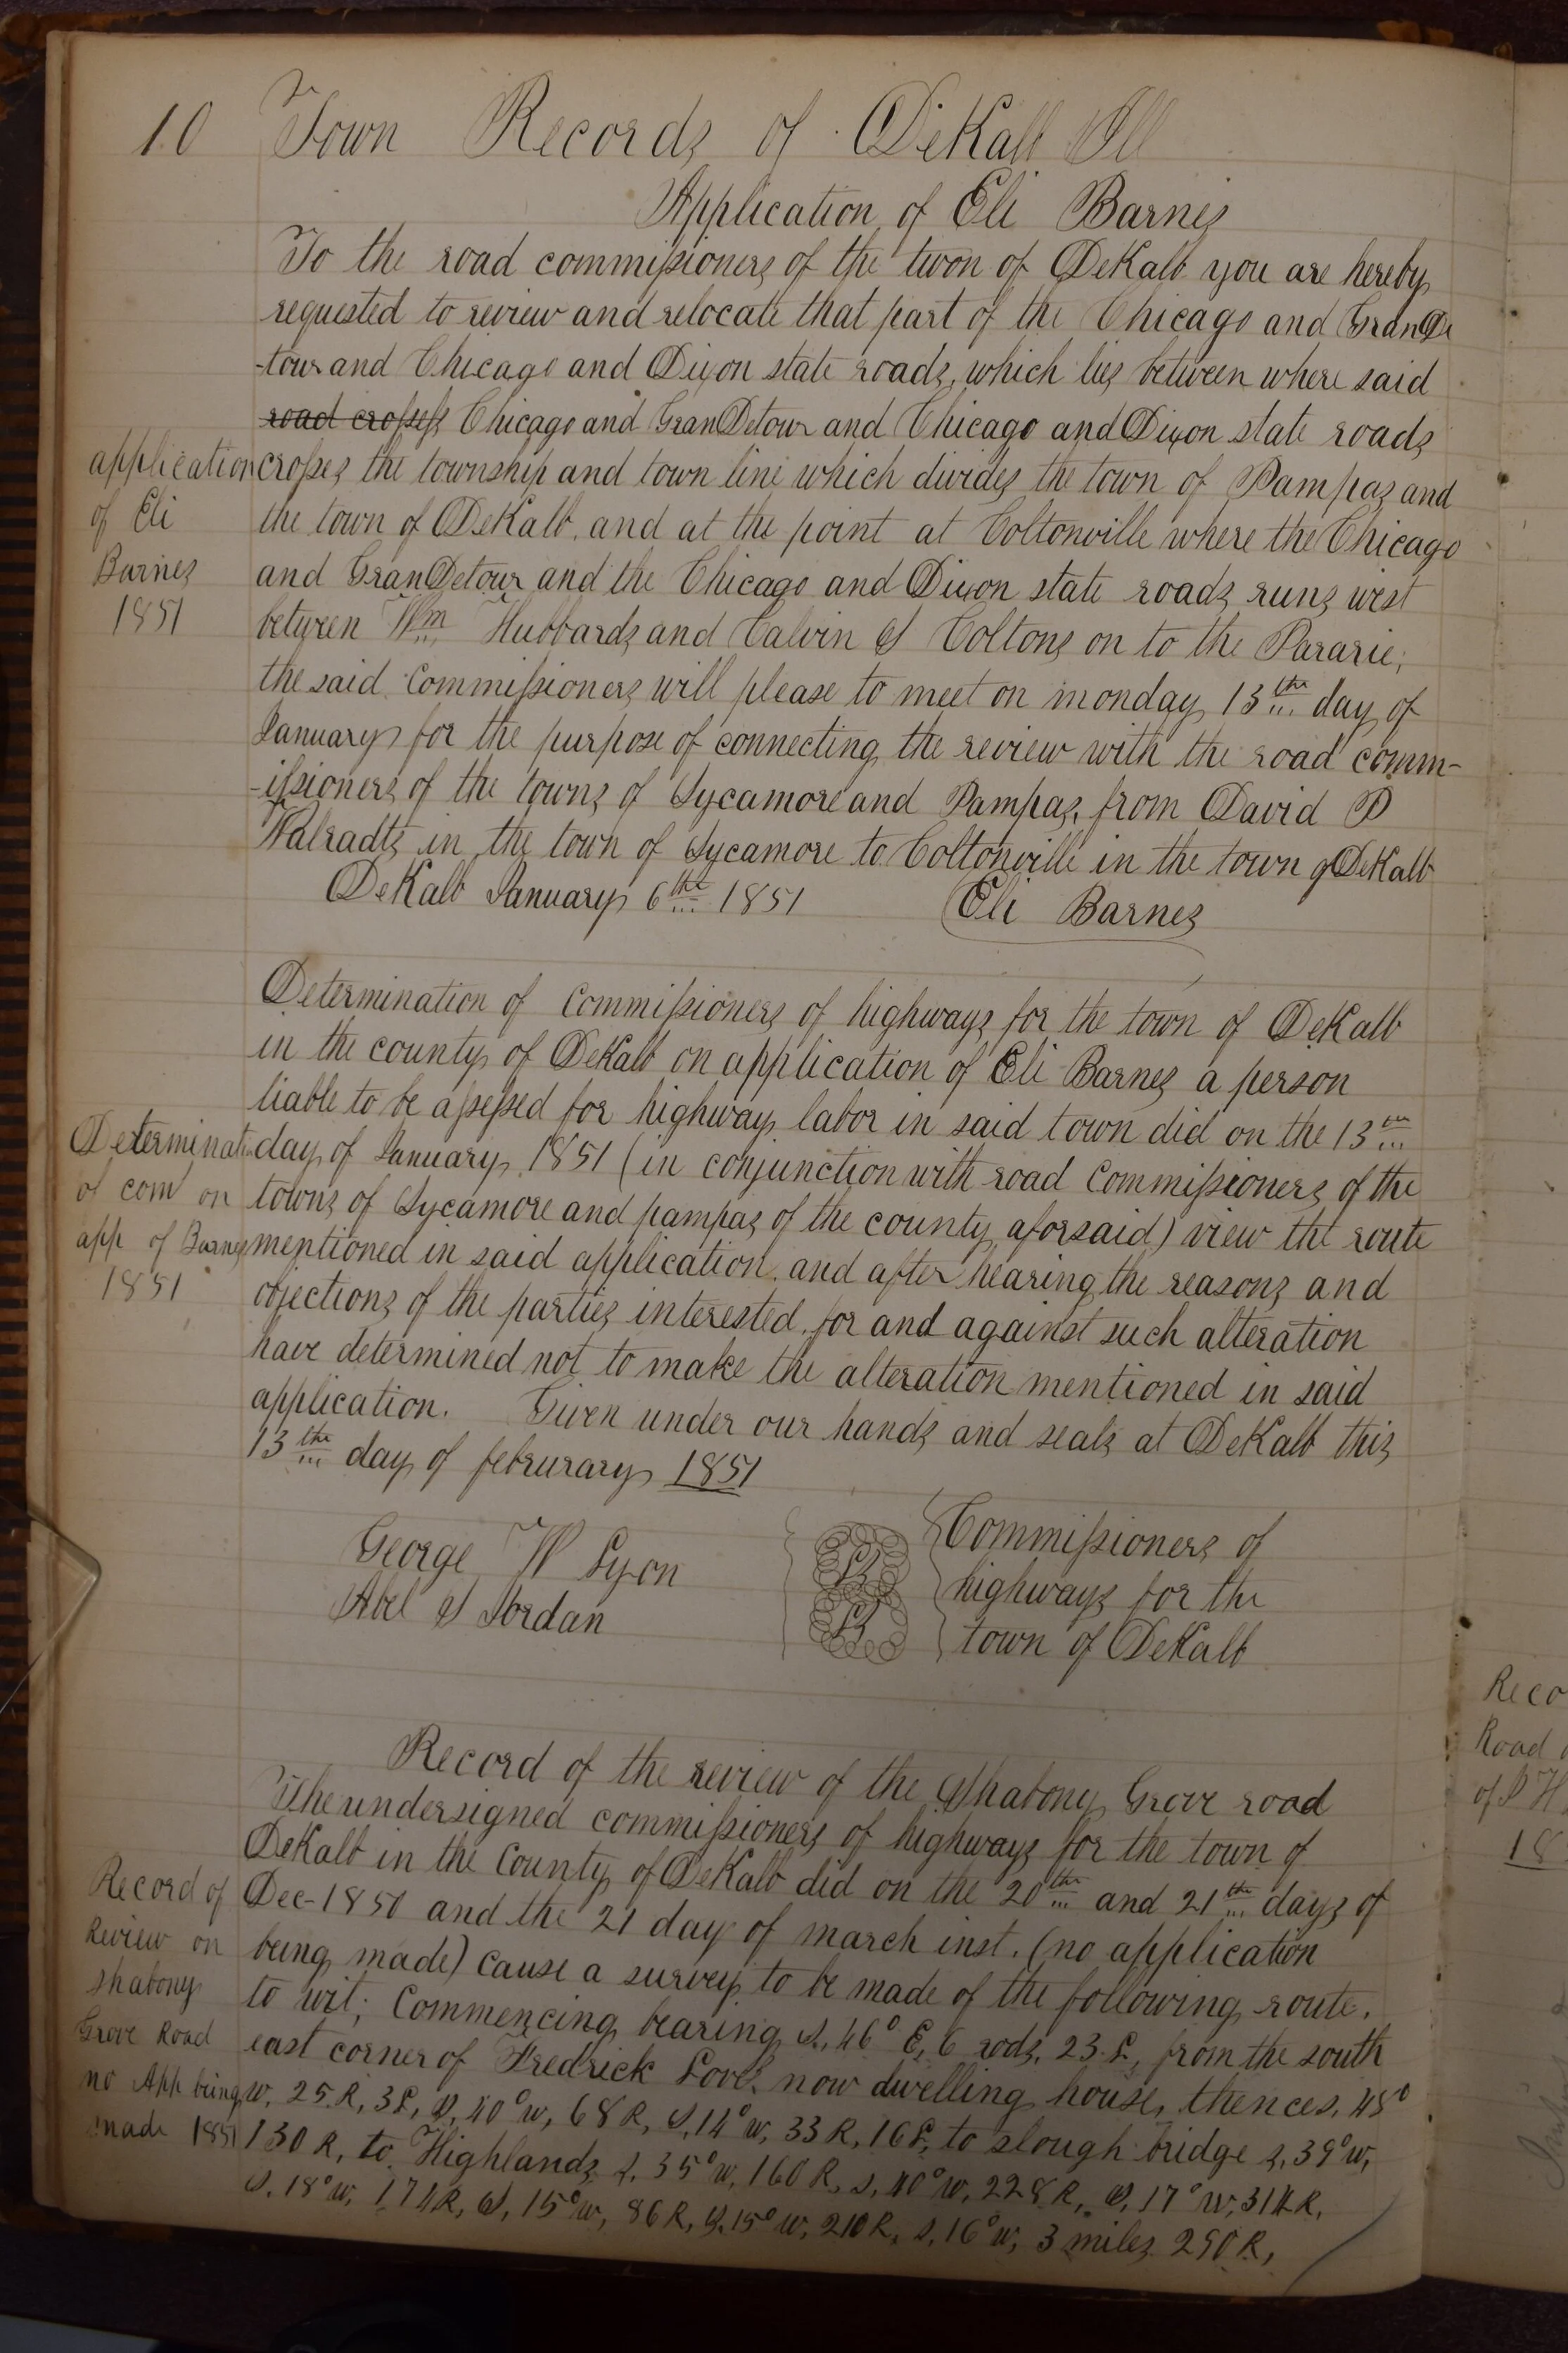 10 Town Records of DeKalb Ill
Application of Eli Barnes
To the road commissioners of the twon of DeKalb you are hereby
requested to review and relocate that part of the Chicago and GranDe
-tour and Chicago and Dixon state roads, which lies between where said
road crosses Chicago and GranDetour and Chicago and Dixon state roads
crosses the township and town line which divides the town of Pampas and
the town of DeKalb, and at the point at Coltonville where the Chicago
and GranDetour and the Chicago and Dixon state roads runs west
between Wm Hubbards and Calvin S Coltons on to the Pararie;
the said Commissioners will please to meet on monday 13th day of
January for the purpose of connecting the review with the road comm-
-issioners of the towns of Sycamore and Pampas, from David P
Walradts in the town of Sycamore to Coltonville in the town of DeKalb
DeKalb January 6th 1851 Eli Barnes
application
of Eli
Barnes
1851
Determination of Commissioners of highways for the town of DeKalb
in the county of DeKalb on application of Eli Barnes a person
liable to be assessed for highway labor in said town did on the 13th
day of January 1851 (in conjunction with road Commissioners of the
towns of Sycamore and pampas of the county aforsaid) view the route
mentioned in said application, and after hearing the reasons and
objections of the parties interested, for and against such alteration
have determined not to make the alteration mentioned in said
application. Given under our hands and seals at DeKalb this
13th day of februrary 1851
Determinati
of com on
app of Barnes
1851
George W Lyon
Abel S Jordan
Commissioners of
highways for the
town of DeKalb
Record of the review of the Shabony Grove road
The undersigned commissioners of highways for the town of
DeKalb in the County of DeKalb did on the 20th and 21th days of
Dec-1850 and the 21 day of march inst. (no application
being made) cause a survey to be made of the following route.
to wit; Commencing bearing S. 46° E, 6 rods, 23 L, from the south
east corner of Fredrick Loves now dwelling house, thence s. 45°
w, 25 R, 3 L, S, 40° w, 68 R, S, 14° w, 33 R, 16 L, to slough bridge s, 39° w,
130 R, to Highlands s, 35° w, 160 R, s, 40° w, 228 R, S, 17° W, 314 R,
S, 18° w, 174 R, S, 15° w, 86 R, S, 15° w, 210 R, s, 16° w, 3 miles 290 R,
Record of
Review on
shabony
Grove Road
no App being
made 1851
Reco
Road
of
18